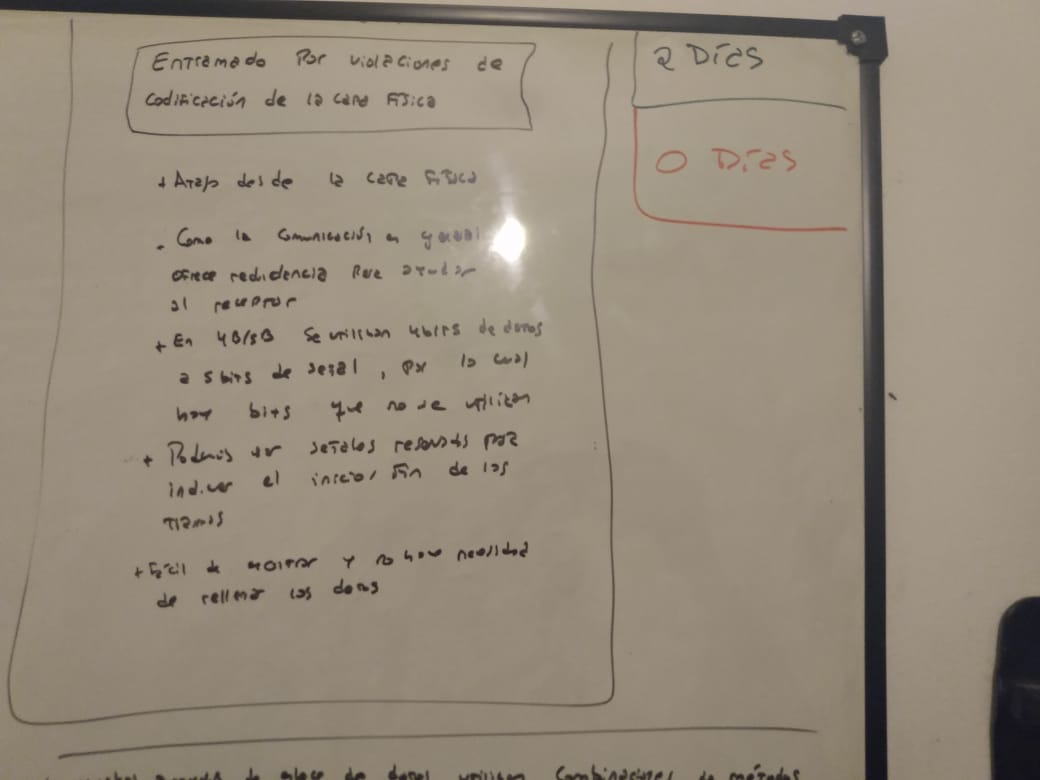 Entramado Por violaciones de
Codificación de la capa Física
+ Atajo desde la capa Física
- Como la comunicación en general
ofrece redidencia para ayudar
al receptor
+ En 4B/5B se utilizan 4bits de datos
a 5 bits de señal, por lo cual
hay bits que no se utilizan
+ Podemos usar señales reservadas para
indicar el inicio/Fin de las
tramas
+ Fácil de y no hay necesidad
de rellenar los datos
2 Días
0 Días
de enlace de datos utilizan Combinaciones de métodos